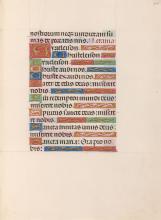 nostrorum neq; vindictam su
mas de peccatis nris. Letania.
Kyrieleyson
Christeleyson
Kyrieleyson
Christe audi nos
Christe exaudi nos
Pater de celis deus miserere
nobis
Fili redemptor mundi deus
miserere nobis
Spiritus sancte deus miserere
nobis
Sancta trinitas unus deus
miserere nobis
Sancta maria. Ora pro no
bis